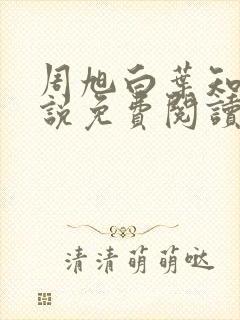 周旭白葉知
說免費閱讀
清清萌萌噠